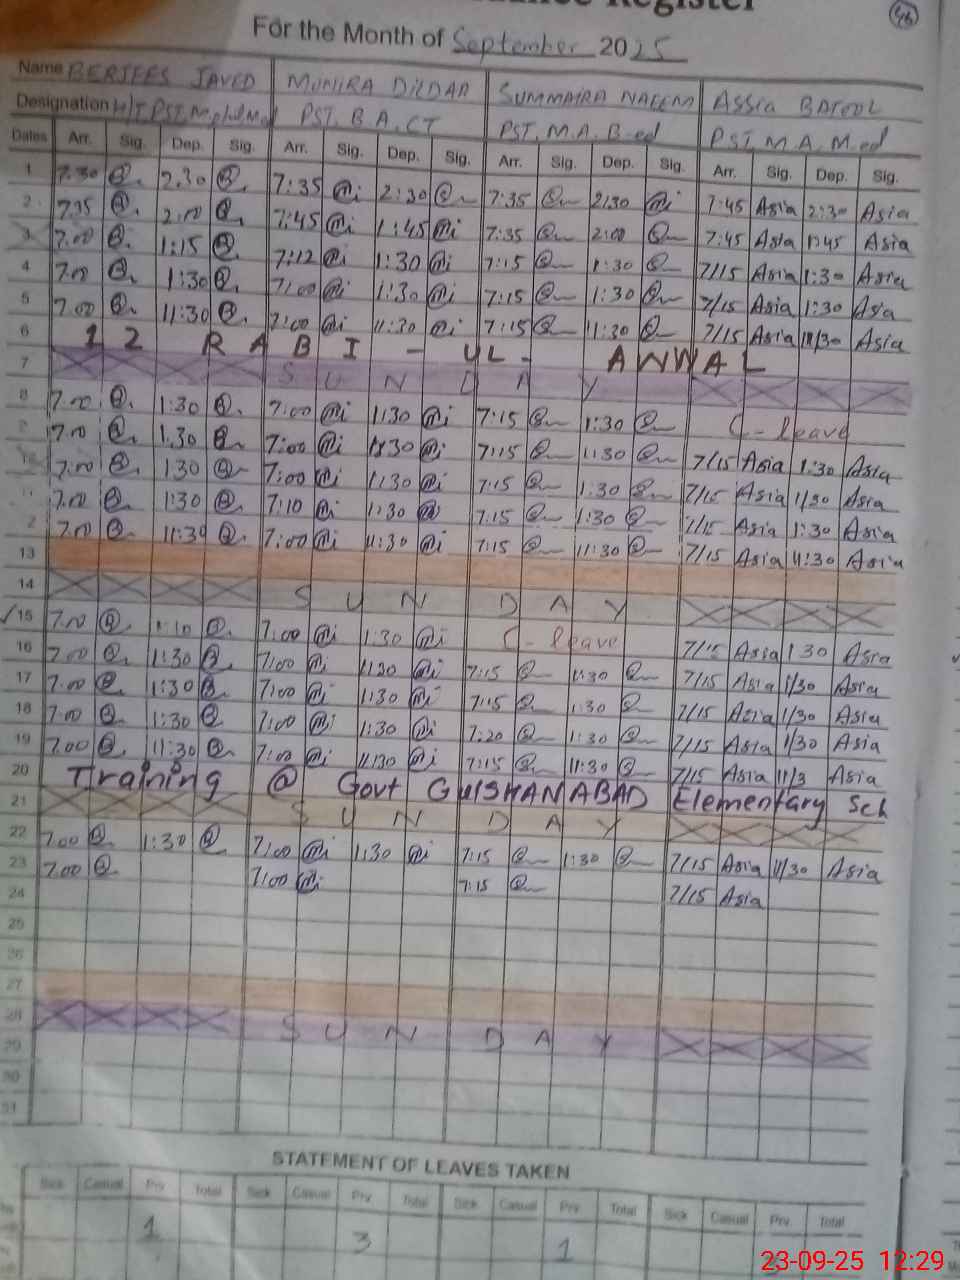 Register
46
For the Month of September 2025
Name BERJEES JAVED MUNIRA DILDAR SUMMAIRA NAEEM Assia BATOOL
Designation H/T PST. PST. B.A. CT PST. M.A. B-ed PST, M.A. M.ed
Dates Arr. Sig. Dep. Sig. Arr. Sig. Dep. Sig. Arr. Sig. Dep. Sig. Arr. Sig. Dep. Sig.
1 7.30 2.30 7:35 2:30 7:35 2:30 7:45 Asia 2:30 Asia
2 7.35 2:00 7:45 1:45 7:35 2:00 7:45 Asia 1:45 Asia
3 7.00 1:15 7:12 1:30 7:15 1:30 7/15 Asia 1:30 Asia
4 7.00 1:30 7:00 1:30 7:15 1:30 7/15 Asia 1:30 Asia
5 7.00 11:30 7:00 11:30 7:15 11:30 7/15 Asia 11/30 Asia
6 12 RABI-UL-AWWAL
7 SUNDAY
8 7.00 1:30 7:00 1:30 7:15 1:30 C-leave
7.00 1.30 7:00 1:30 7:15 1:30 7/15 Asia 1:30 Asia
7:00 1:30 7:00 1:30 7:15 1:30 7/15 Asia 1/30 Asia
7.00 1:30 7:10 1:30 7:15 1:30 7/15 Asia 1:30 Asia
2 7.00 11:30 7:00 11:30 7:15 11:30 7/15 Asia 11:30 Asia
13
14 SUNDAY
15 7.00 1:10 7:00 1:30 C-leave 7/15 Asia 1 30 Asia
16 7.00 1:30 7:00 1:30 7:15 1:30 7/15 Asia 1/30 Asia
17 7.00 1:30 7:00 1:30 7:15 1:30 7/15 Asia 1/30 Asia
18 7.00 1:30 7:00 1:30 7:20 1:30 7/15 Asia 1/30 Asia
19 7.00 11:30 7:00 11:30 7:15 11:30 7/15 Asia 11/3 Asia
20 Training @ Govt GUlSHANABAD Elementary Sch
21 SUNDAY
22 7.00 1:30 7:00 1:30 7:15 1:30 7/15 Asia 1/30 Asia
23 7.00 7:00 7:15 7/15 Asia
24
25
26
27
28 SUNDAY
29
30
31
STATEMENT OF LEAVES TAKEN
Sick Casual Prv. Total Sick Casual Prv. Total Sick Casual Prv. Total Sick Casual Prv. Total
1 3 1
23-09-25 12:29